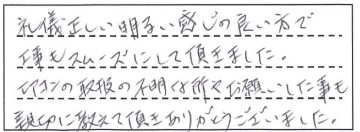 礼儀正しい明るい感じの良い方で
工事もスムーズにして頂きました。
エアコンの取扱の不明な所々お願いした事も
親切に教えて頂きありがとうございました。